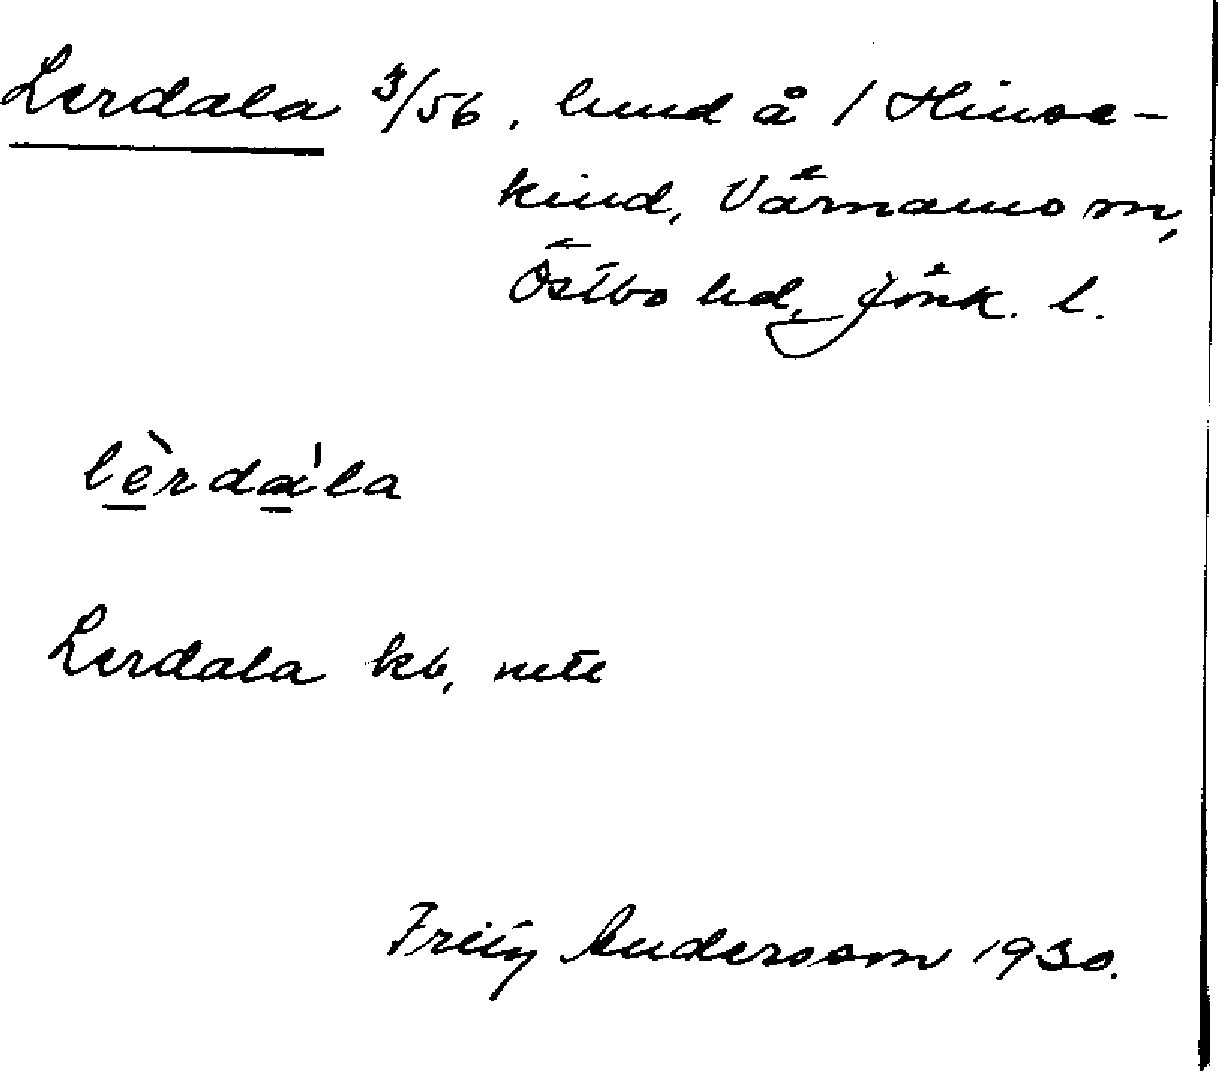 Lerdala 3/56, lund å 1 Hinse-
kind, Värnamo sn,
Östbo hd, Jönk. l.
lèrdàˈla
Lerdala kb, mtl
Fritz Andersson 1930.